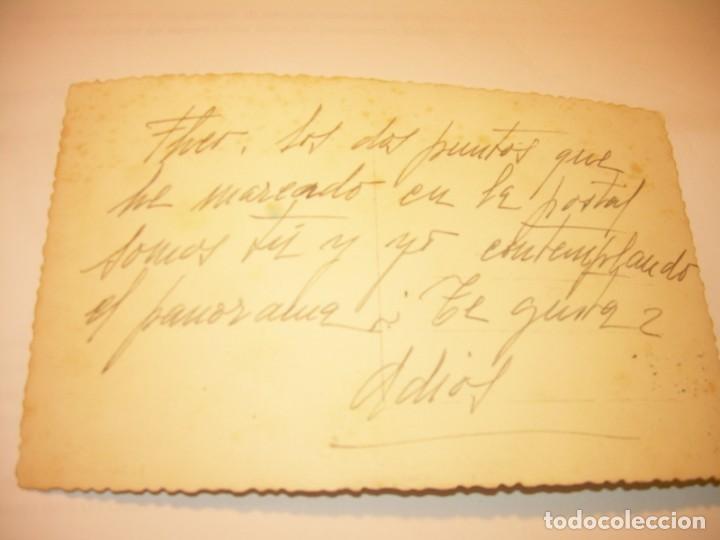 Los dos puntos que
he marcado en la postal
somos tú y yo contemplando
el panorama ¿Te gusta?
Adios
todocoleccion